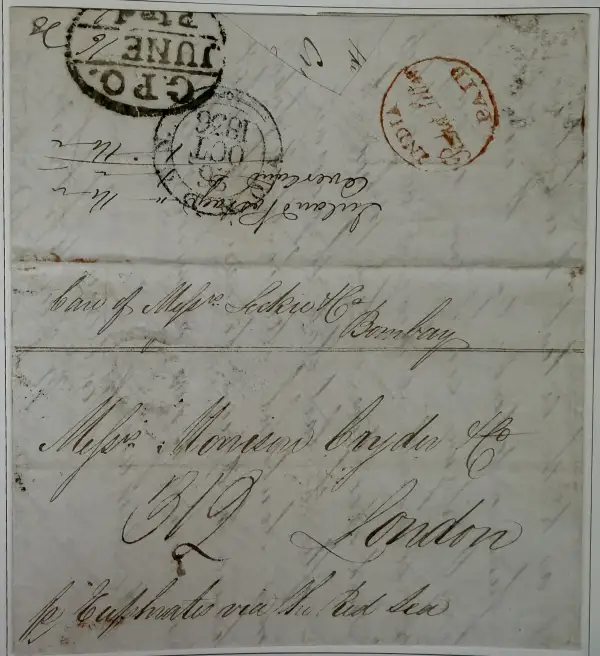 G.P.O.
JUNE 16
INDIA
PAID
26
OCT
1836
Inland Postage
Overland
Care of Messrs. Leckie & Co
Bombay
Messrs. Morrison Cryder & Co
312
London
pr Euphrates via the Red Sea